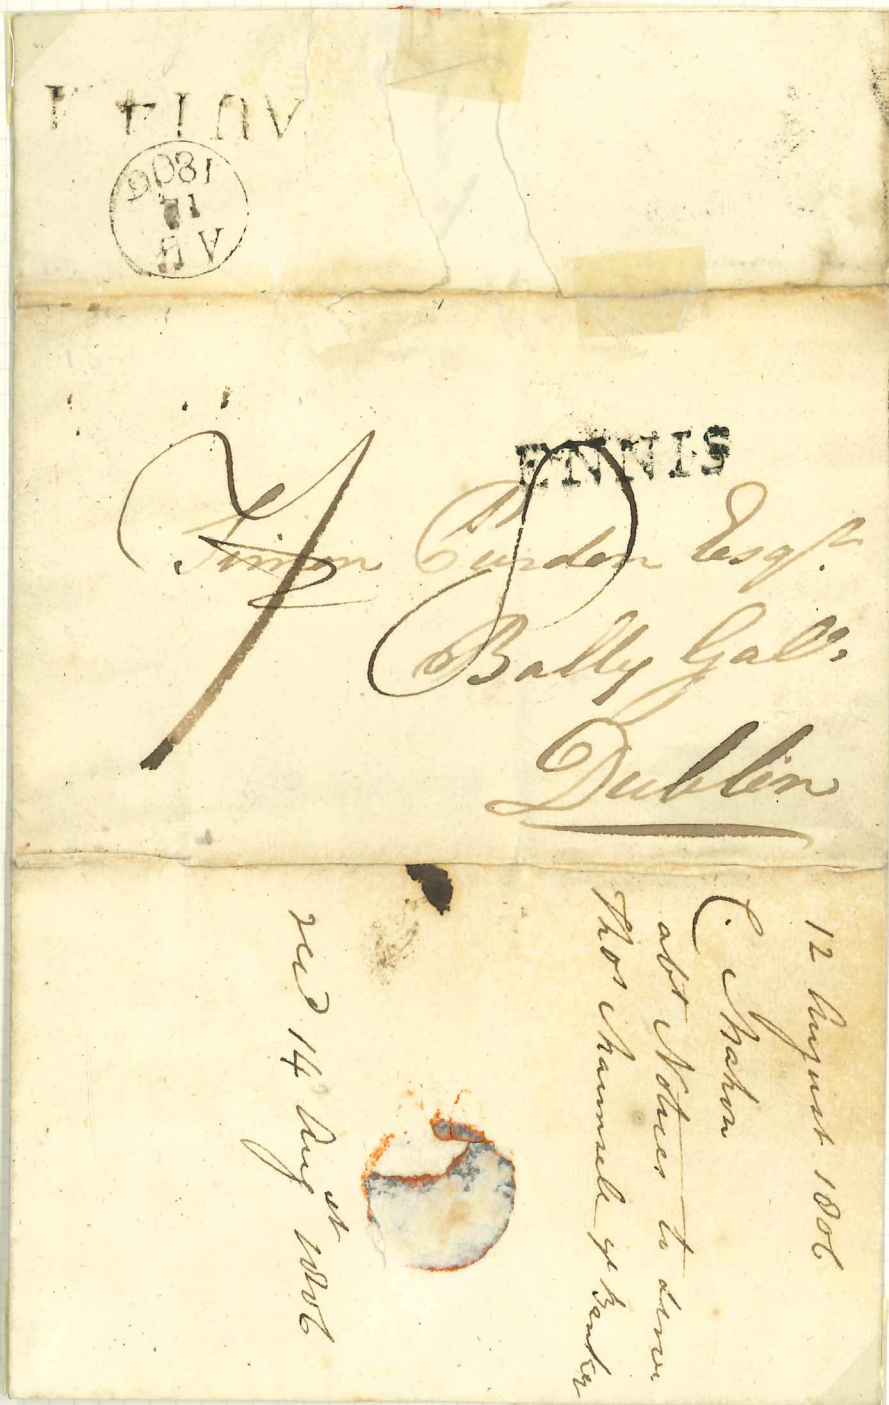 AU 14
AU
14
1806
ENNIS
Simon Purdon Esqr.
Bally Gall,
Dublin
12 August 1806
C. Mahon
abt Notices to serve
Thos Maunsell ye Banker
recd 14 Augst 1806